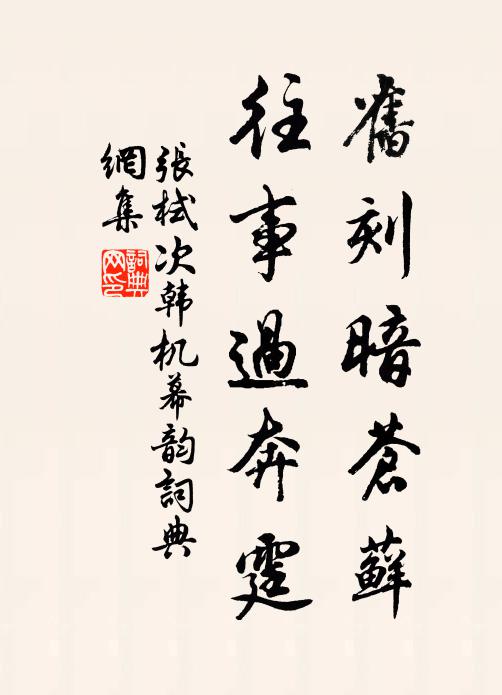 舊刻暗蒼蘚
往事過奔霆
張栻次韩机幕韵詞典
網集
詞典网印